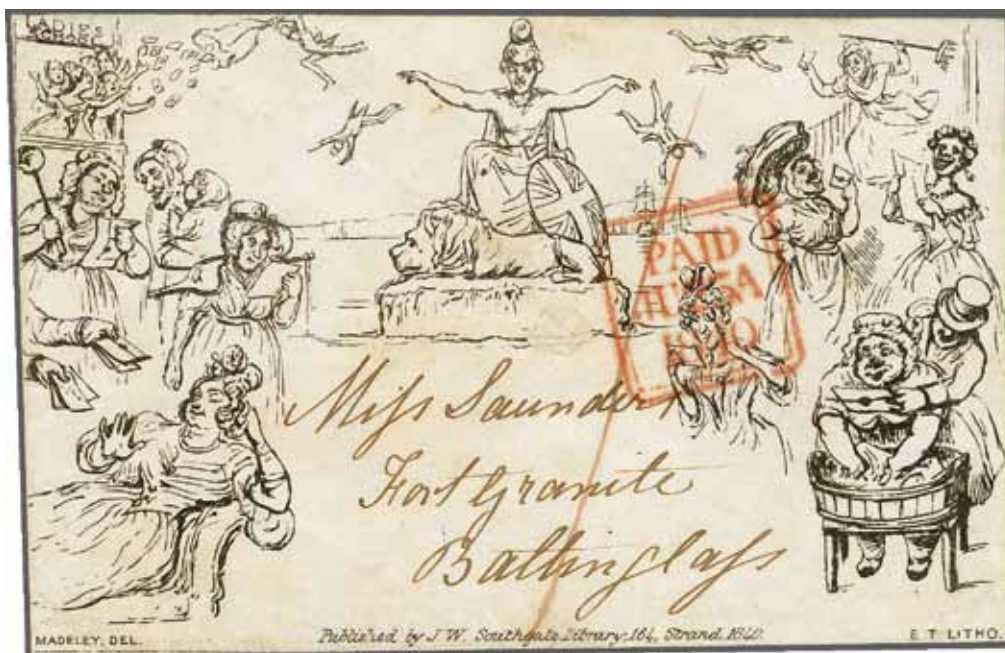 LADIES
SCHOOL
PAID
Miſs Saunders
Fort Granite
Baltinglaſs
MADELEY, DEL.
Published by J. W. Southgate, Library, 164, Strand. 1840.
E. T. LITHO.